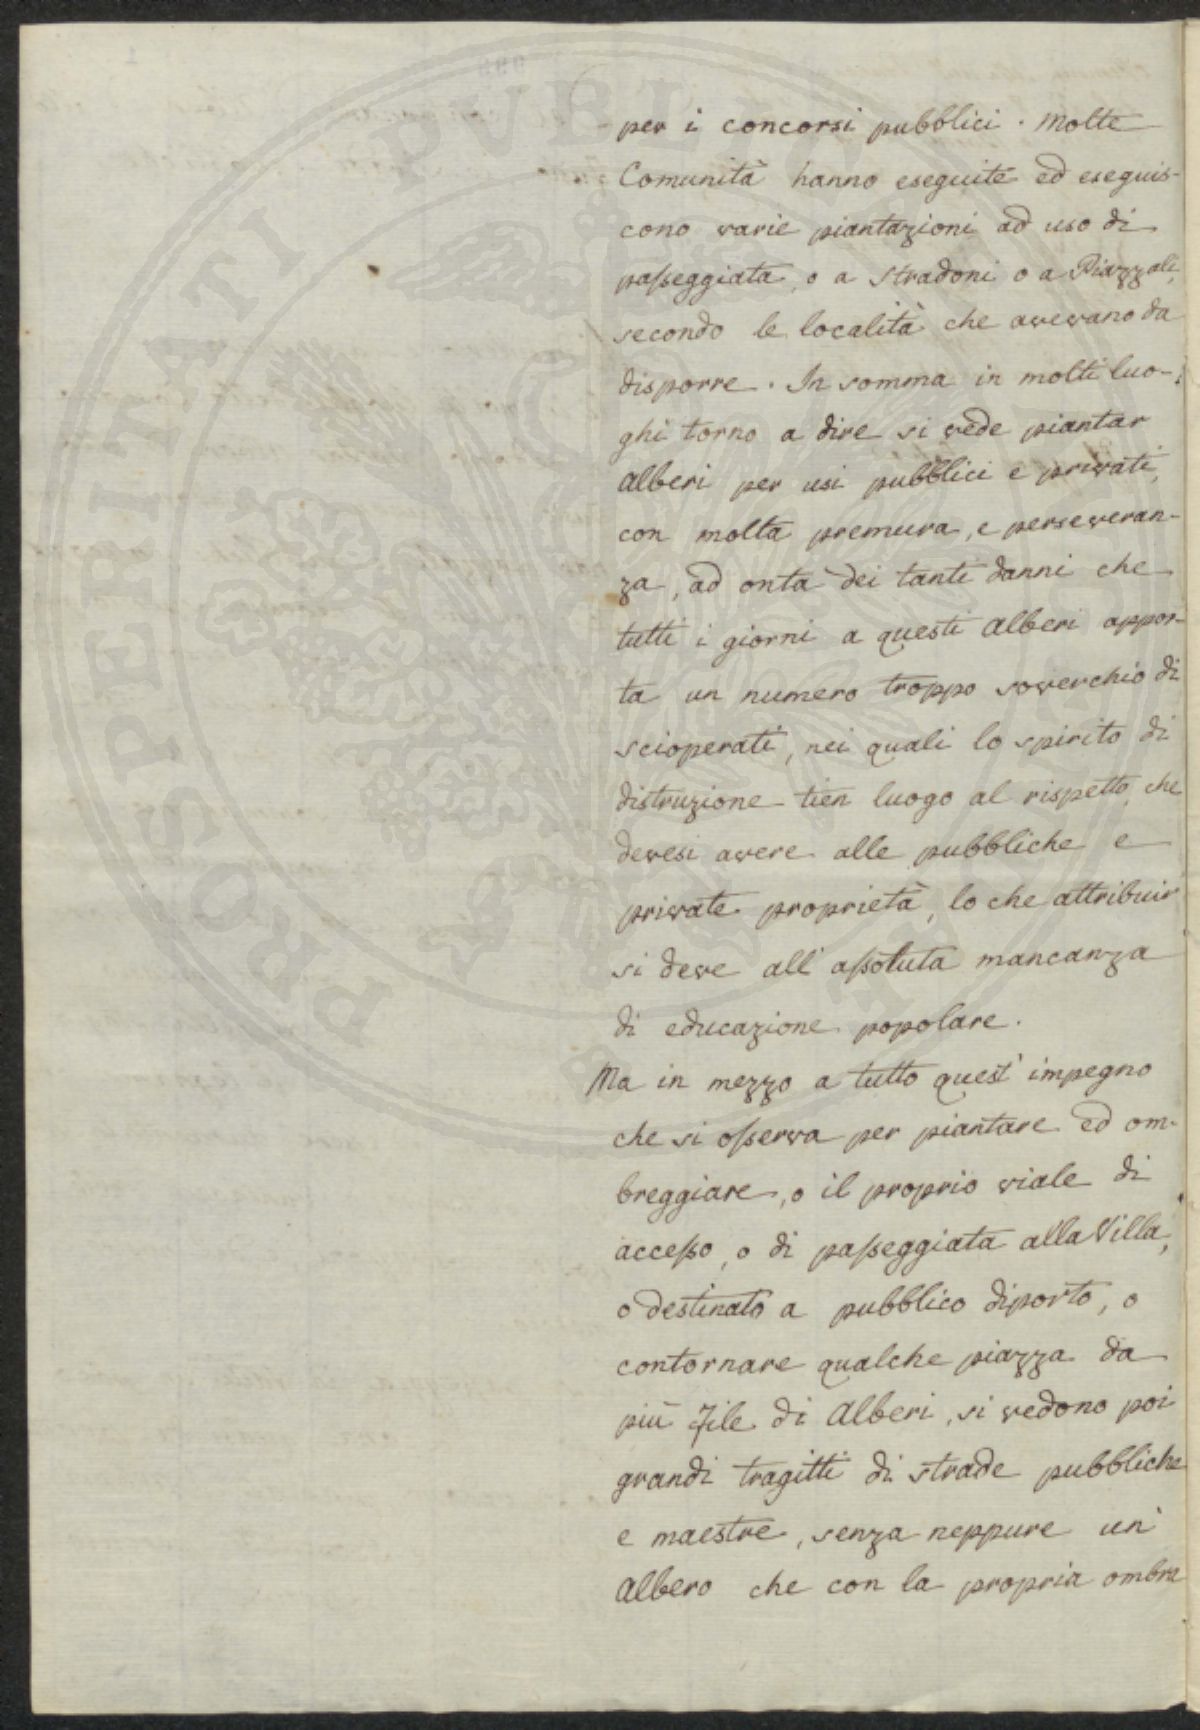 per i concorsi pubblici. Molte
Comunità hanno eseguite ed eseguis-
cono varie piantazioni ad uso di
passeggiata, o a Stradoni o a Piazzali,
secondo le località che avevano da
disporre. In somma in molti luo-
ghi torno a dire si vede piantar
Alberi per usi pubblici e privati,
con molta premura, e perseveran-
za, ad onta dei tanti danni che
tutti i giorni a questi Alberi appor-
ta un numero troppo soverchio di
scioperati, nei quali lo spirito di
distruzione tien luogo al rispetto, che
devesi avere alle pubbliche e
private proprietà, lo che attribuir
si deve all'assoluta mancanza
di educazione popolare.
Ma in mezzo a tutto quest'impegno
che si osserva per piantare ed om-
breggiare, o il proprio viale di
accesso, o di passeggiata alla Villa,
o destinato a pubblico diporto, o
contornare qualche piazza da
più file di Alberi, si vedono poi
grandi tragitti di strade pubbliche
e maestre, senza neppure un'
Albero che con la propria ombra
PROSPERITATI PUBLICAE